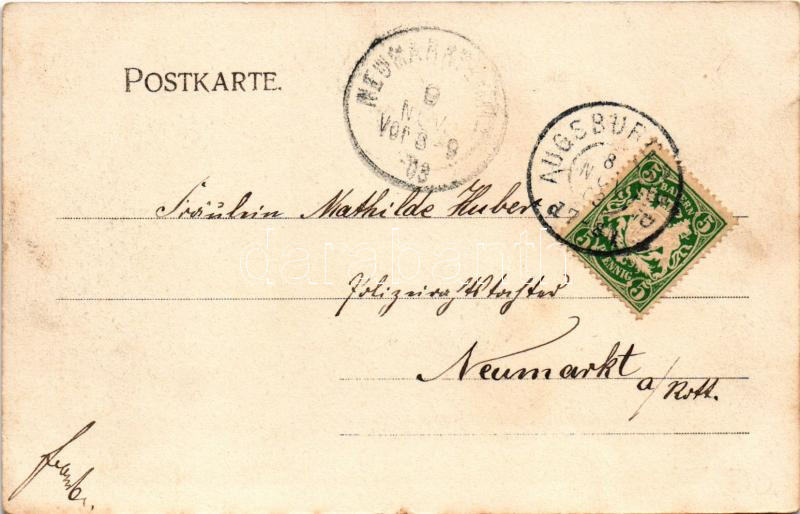 POSTKARTE.
NEUMARKT
9
NOV.
Vor 8-9
03
AUGSBURG
8
NOV
5 BAYERN 5
5 PFENNIG 5
Fräulein Mathilde Huber
Polizeirathstochter
Neumarkt
a/Rott.
darabanth